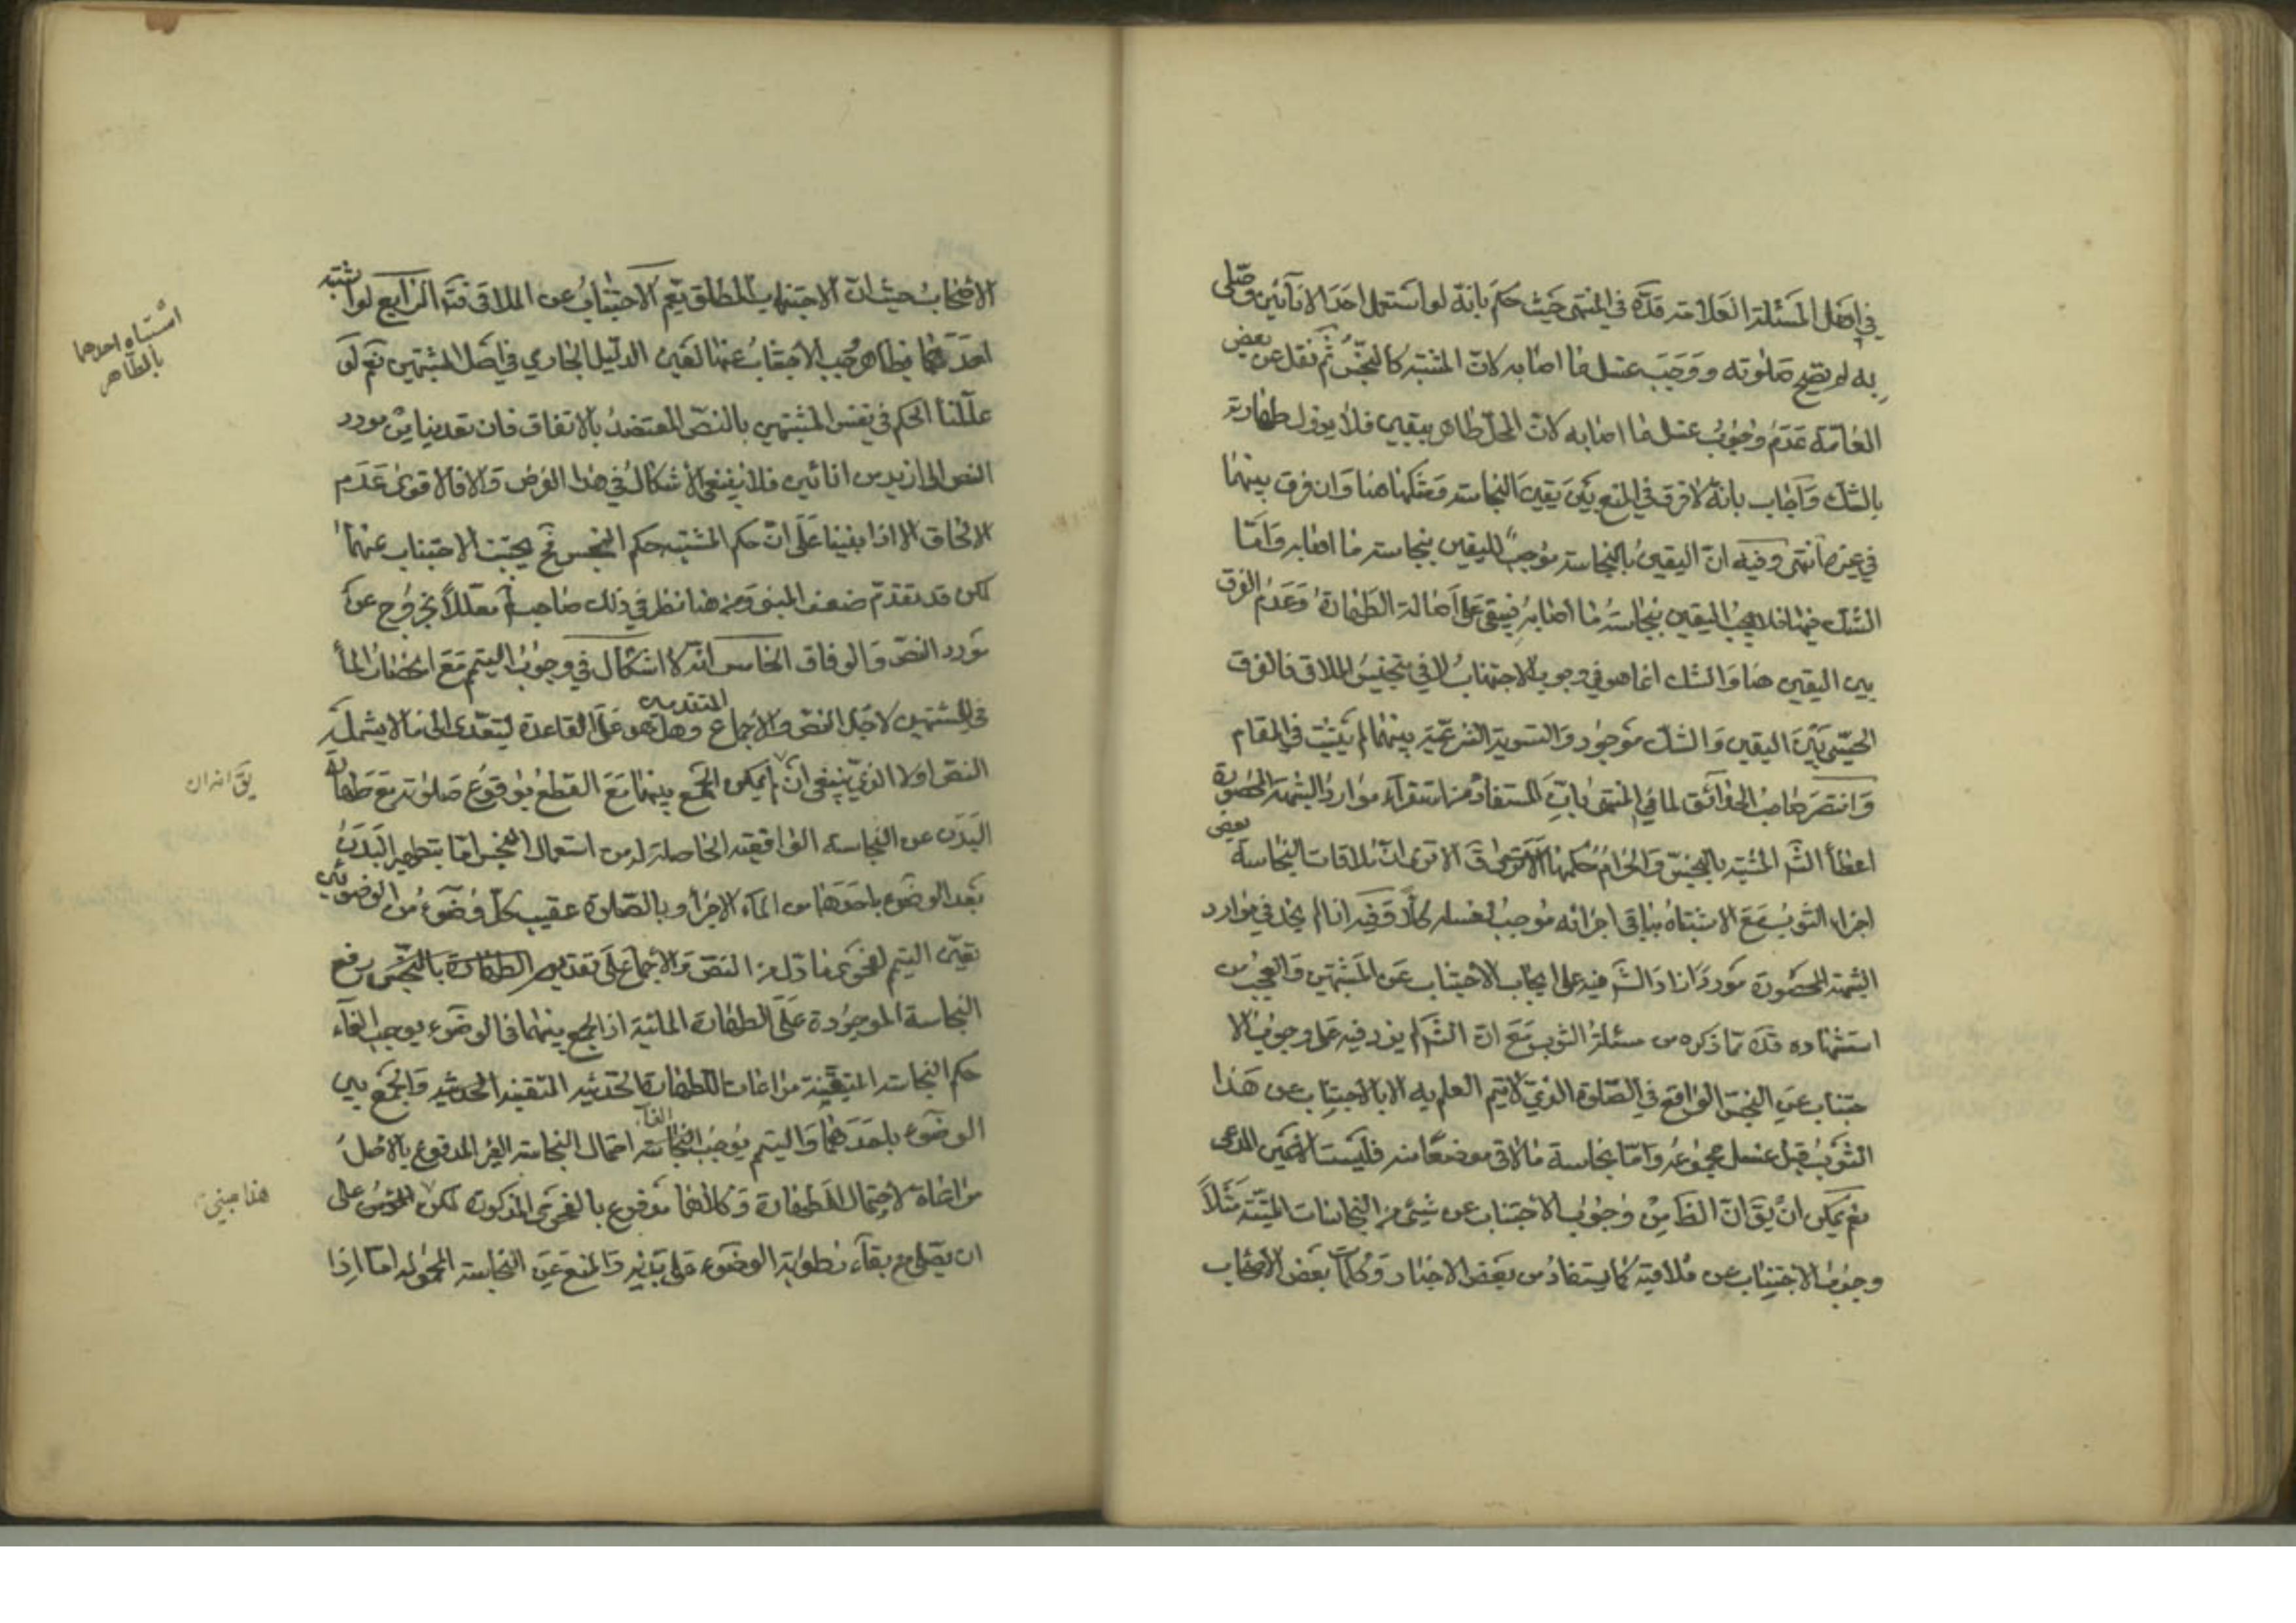 في اصل المسئلة العلامة قدّه في المنتهى حيث حكم بانه لو استعمل احد الانائين وصلى
به لم تصح صلوته ووجب غسل ما اصابه كان المشتبه كالنجس ثم نقل عن بعض
العامة عدم وجوب غسل ما اصابه لان المحل طاهر بيقين فلا يزول طهارته
بالشك واجاب بانه لا فرق في المنع بين يقين النجاسة وشكها هنا وان فرق بينهما
في غيره انتهى وفيه ان اليقين بالنجاسة موجب لليقين بنجاسة ما اصابه واما
الشك فيها فلا يوجب اليقين بنجاسة ما اصابه فيبقى على اصالة الطهارة وعدم الفرق
بين اليقين هنا والشك انما هو في وجوب الاجتناب لا في تنجيس الملاقي فالفرق
الحسي بين اليقين والشك موجود والتسوية الشرعية بينهما لم يثبت في المقام
وانتصر صاحب الحدائق لما في المنتهى بان المستفاد من استقراء موارد الشبهة المحصورة
اعطاء الش المشتبه بالنجس والحرام حكمهما الا ترى ان ملاقات النجاسة بعض
اجزاء الثوب مع الاشتباه بباقي اجزائه موجب لغسله كلا وفيه انا لم نجد في موارد
الشبهة المحصورة موردا زاد الش فيه على ايجاب الاجتناب عن المشتبهين والعجب من
استشهاده قده بما ذكره من مسئلة الثوب مع ان الش لم يزد فيه على وجوب الا
جتناب عن النجس الواقع في الصلوة الذي لا يتم العلم به الا بالاجتناب عن هذا
الثوب قبل غسل مجموعه واما نجاسة ما لاقى موضعا منه فليست الا عين المدعى
نعم يمكن ان يق ان الظ من وجوب الاجتناب عن شيء من النجاسات الميتة مثلا
وجوب الاجتناب عن ملاقيه كما يستفاد من بعض الاخبار وكلمات بعض الاصحاب
الاصحاب حيث ان الاجتناب المطلق يعم الاجتناب عن الملاقي فتد الرابع لو اشتبه
احدهما فظاهر وجوب الاجتناب عنهما لعين الدليل الجاري في اصل المشتبهين نعم لو
عللنا الحكم في نفس المشتبهين بالنص المعتضد بالاتفاق فان تعدينا من مورد
النص الى ازيد من انائين فلا ينبغي الاشكال في هذا الفرض والا فالاقوى عدم
الالحاق الا اذا بنينا على ان حكم المشتبه حكم النجس فح يجب الاجتناب عنهما
لكن قد تقدم ضعف المبنى ومن هنا نظر في ذلك صاحب معللا بخروج عن
مورد النص والوفاق الخامس انه لا اشكال في وجوب التيمم مع انحصار الماء
في المشتبهين لاجل النص والاجماع المتقدمين وهل هو على القاعدة ليتعدى الى ما لا يشمله
النص اولا الذي ينبغي ان يمكن الجمع بينهما مع القطع بوقوع صلوته مع طهارة
البدن عن النجاسة الواقعية الحاصلة له من استعمال النجس اما بتطهير البدن
بعد الوضوء باحدهما من الماء الاخر او بالصلوة عقيب كل وضوء من الوضوئين
تعين التيمم لفحوى ما دل من النص والاجماع على تقديم الطهارة بالنجس رفع
النجاسة الموجودة على الطهارة المائية اذ الجمع بينهما في الوضوء يوجب الغاء
حكم النجاسة المتيقنة مراعات للطهارة الحدثية المتيقنة الحدثية والجمع بين
الوضوء باحدهما والتيمم يوجب الغاء احتمال النجاسة الغير المدفوع بالاصل
مراعاة لاحتمال الطهارة وكلاهما مدفوع بالفحوى المذكورة لكن على
ان يصلي مع بقاء رطوبة الوضوء على بدنه والمنع عن النجاسة المحمولة اما اذا
اشتباه احدهما
بالطاهر
يق انه ان
هذا مبني